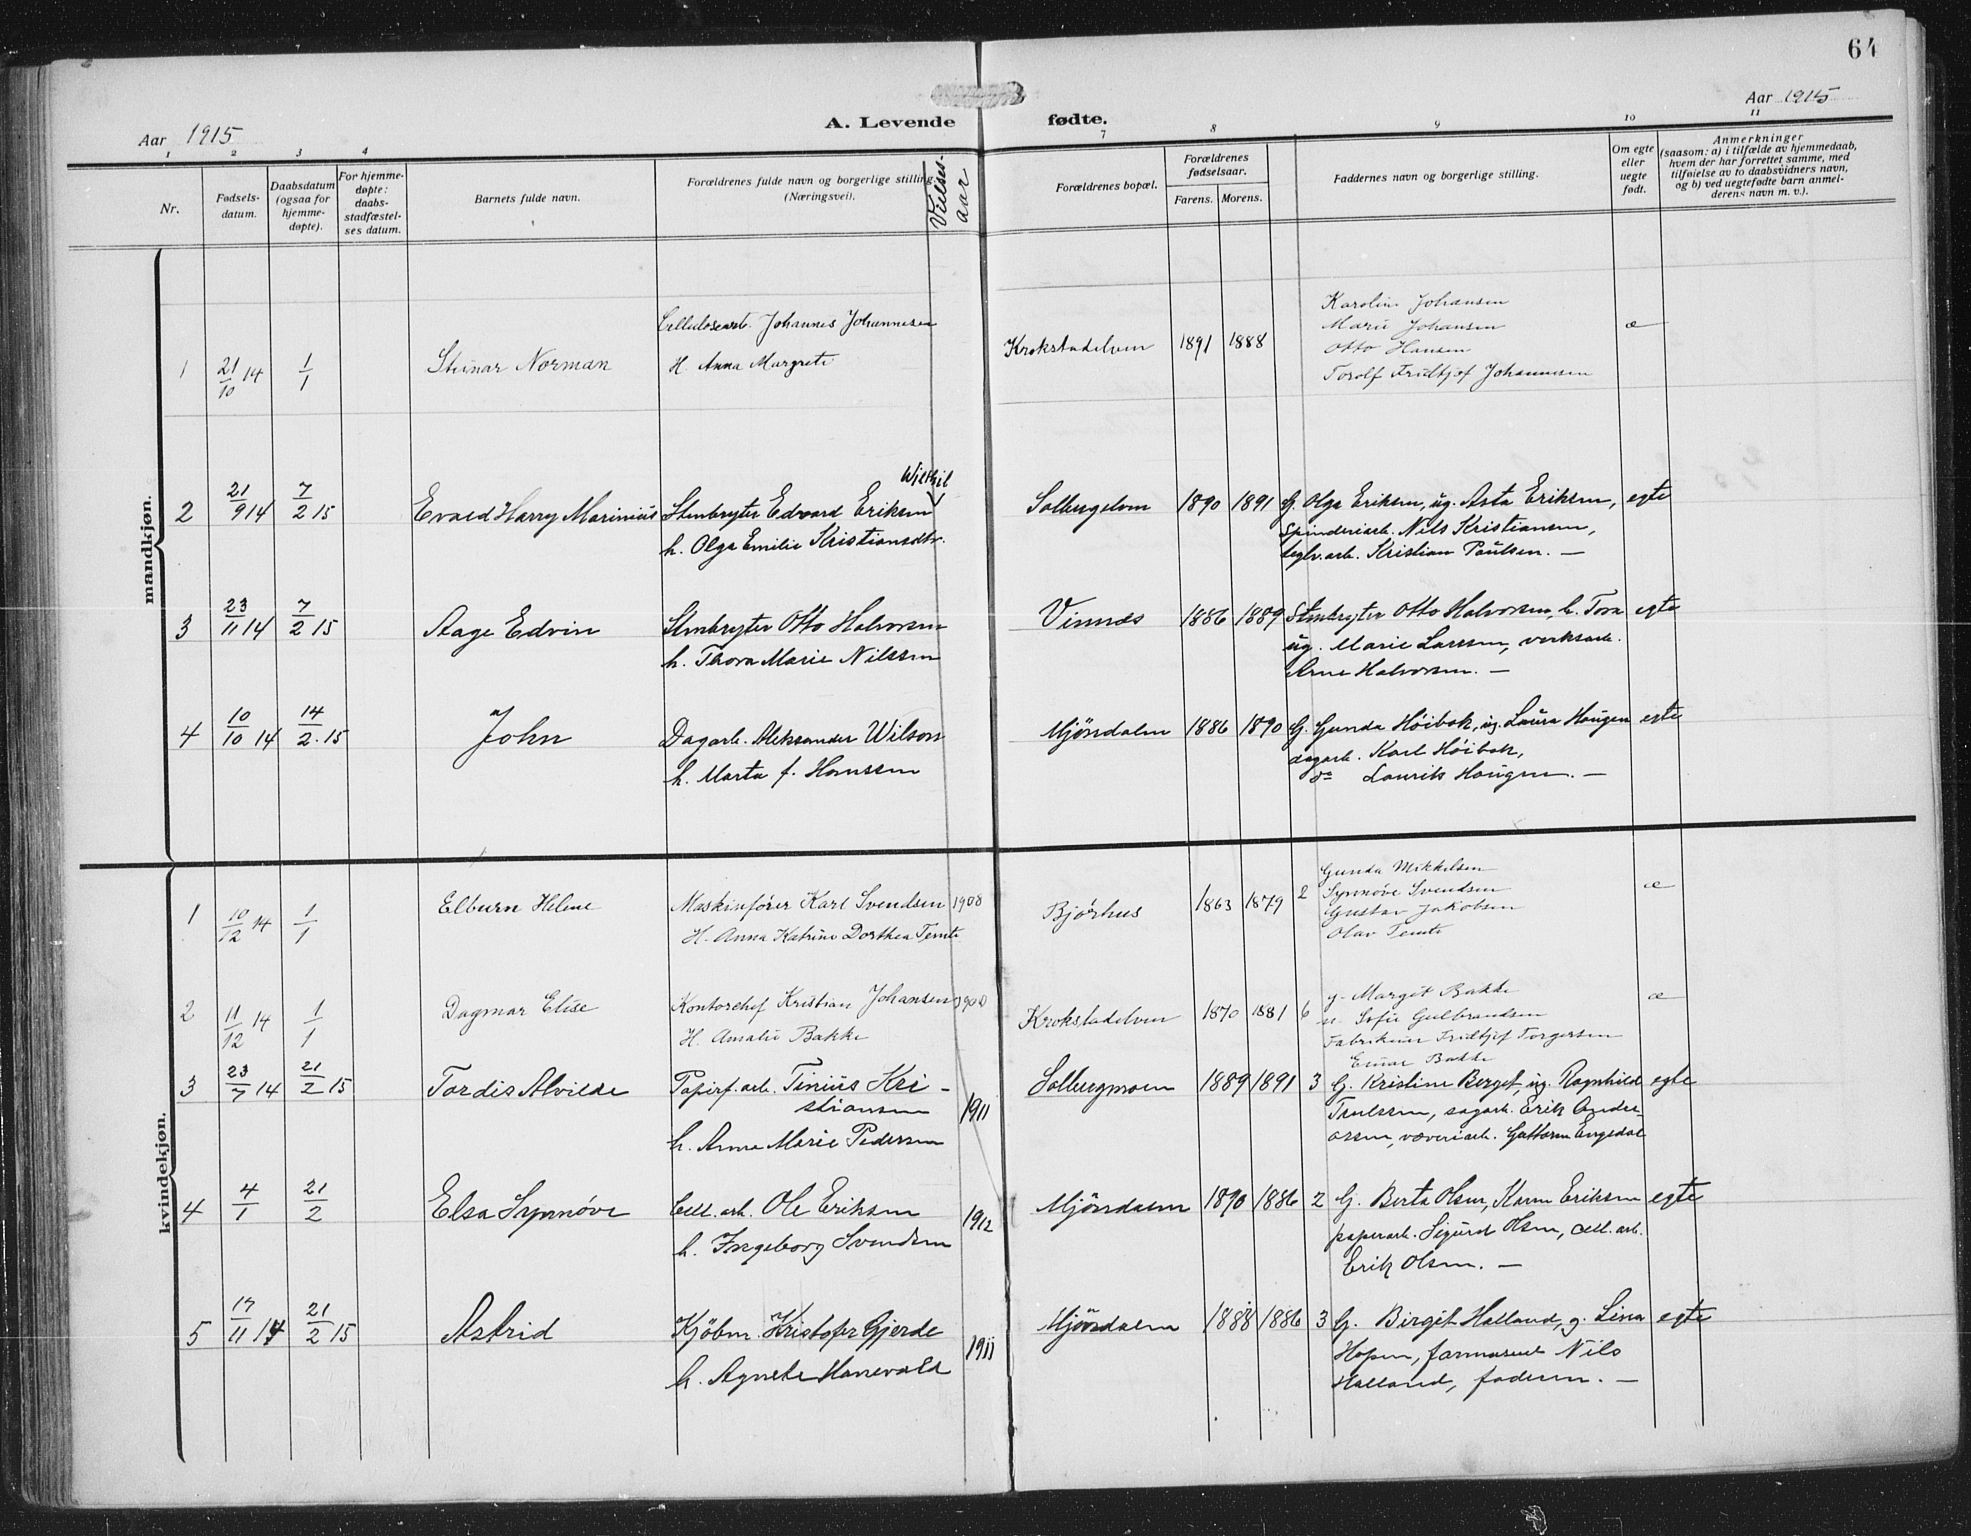 64
Aar 1915
A. Levende fødte.
Aar 1915
1 2 3 4 7 8 9 10 11
Nr.
Fødsels-
datum.
Daabsdatum
(ogsaa for
hjemme-
døpte).
For hjemme-
døpte:
daabs-
stadfæstel-
ses datum.
Barnets fulde navn.
Forældrenes fulde navn og borgerlige stilling
(Næringsvei).
Vielses-
aar
Forældrenes bopæl.
Forældrenes
fødselsaar.
Farens. Morens.
Faddernes navn og borgerlige stilling.
Om egte
eller
uegte
født.
Anmerkninger
(saasom: a) i tilfælde av hjemmedaab,
hvem der har forrettet samme, med
tilføielse av to daabsvidners navn,
og b) ved uegtefødte barn anmel-
derens navn m. v.).
mandkjøn.
1 21/10 14 1/1 Steinar Norman
Cellulosearb. Johannes Johannesen
H. Anna Margrete
Krokstadelven 1891 1888
Karoline Johansen
Marie Johansen
Otto Hansen
Torolf Fridtjof Johannesen
æ
2 21/9 14 7/2 15 Evald Harry Marinius
Stenbryter Edvard Eriksen
h. Olga Emilie Kristiansdtr.
Solbergelven 1890 1891
G. Olga Eriksen, ug. Asta Eriksen,
Spinderiarb. Nils Kristiansen,
teglv.arb. Kristian Paulsen. —
egte
3 23/11 14 7/2 15 Aage Edvin
Stenbryter Otto Halvorsen
h. Thora Marie Nilssen
Vinnes 1886 1889
Stenbryter Otto Halvorsen, h. Tora
ug. Marie Larssen, verksarb.
Arne Halvorsen. —
egte
4 10/10 14 14/2 15 John
Dagarb. Aleksander Wilson
h. Marta f. Hanssen
Mjöndalen 1886 1890
G. Gunda Höibak, ug. Laura Haugen
dagarb. Karl Höibak,
do Laurits Haugen. —
egte
kvindekjøn.
1 10/12 14 1/1 Elburn Helene
Maskinfører Karl Svendsen 1908
H. Anna Katrine Dorthea Temte
Bjørhus 1863 1879 2
Gunda Mikkelsen
Synnøve Svendsen
Gustav Jakobsen
Olav Temte
æ
2 11/12 14 1/1 Dagmar Elise
Kontorchef Kristian Johansen 1900
H. Amalie Bakke
Krokstadelven 1870 1881 6
g. Margit Bakke
u. Sofie Gulbrandsen
Fridtjof Torgersen
Einar Bakke
æ
3 23/7 14 21/2 15 Tordis Alvilde
Papirf. arb. Tinius Kri-
stiansen 1911
h. Anna Marie Pedersen
Solbergmoen 1889 1891 3
G. Kristine Berget, ug. Ragnhild
Trulssen, sagarb. Erik Ander-
assen, væveriarb. Guttorm Engedal
egte
4 4/1 21/2 Elsa Synnöve
Cell. arb. Ole Eriksen 1912
h. Ingeborg Svendsen
Mjöndalen 1890 1886 2
G. Berta Olsen, Karen Eriksen
paperarb. Sigurd Olsen, cell. arb.
Erik Olsen. —
egte
5 17/11 14 21/2 15 Astrid
Kjöbm. Kristofer Gjerde 1911
h. Agnete Hanevald
Mjöndalen 1888 1886 3
G. Birgit Halland, g. Lina
Hopen, farmaseut Nils
Halland, faderen. —
egte